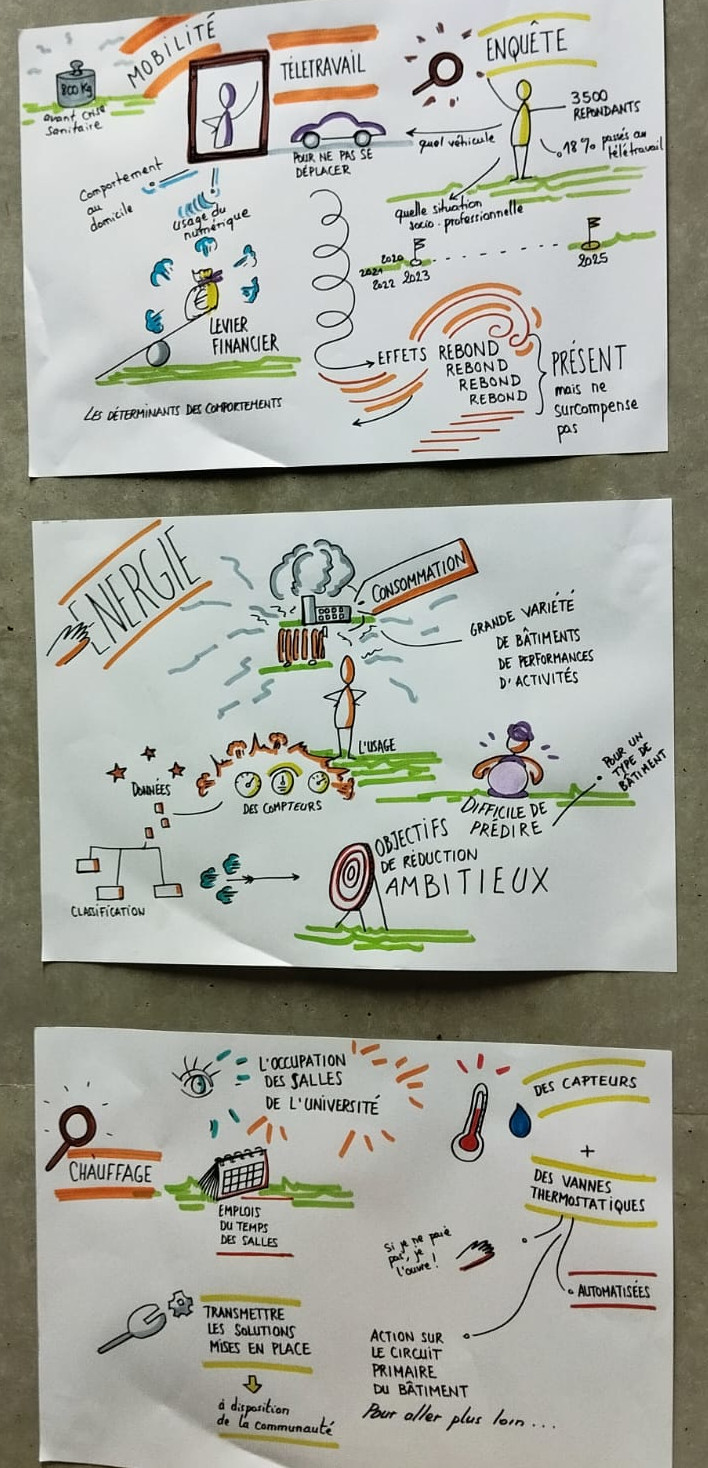 MOBILITÉ
800 Kg
avant crise
sanitaire
TÉLETRAVAIL
POUR NE PAS SE
DÉPLACER
ENQUÊTE
3500
REPONDANTS
18% passés au
télétravail
quel véhicule
quelle situation
socio-professionnelle
2020
2021
2022
2023
2025
Comportement
au
domicile
usage du
numérique
€
LEVIER
FINANCIER
LES DÉTERMINANTS DES COMPORTEMENTS
EFFETS REBOND
REBOND
REBOND
REBOND
PRÉSENT
mais ne
surcompense
pas
ÉNERGIE
CONSOMMATION
GRANDE VARIÉTÉ
DE BÂTIMENTS
DE PERFORMANCES
D'ACTIVITÉS
L'USAGE
DONNÉES
DES COMPTEURS
DIFFICILE DE
PRÉDIRE
POUR UN
TYPE DE
BÂTIMENT
CLASSIFICATION
OBJECTIFS
DE RÉDUCTION
AMBITIEUX
CHAUFFAGE
L'OCCUPATION
DES SALLES
DE L'UNIVERSITÉ
EMPLOIS
DU TEMPS
DES SALLES
DES CAPTEURS
+
DES VANNES
THERMOSTATIQUES
Si je ne paie
pas, je
l'ouvre!
AUTOMATISÉES
TRANSMETTRE
LES SOLUTIONS
MISES EN PLACE
à disposition
de la communauté
ACTION SUR
LE CIRCUIT
PRIMAIRE
DU BÂTIMENT
Pour aller plus loin...